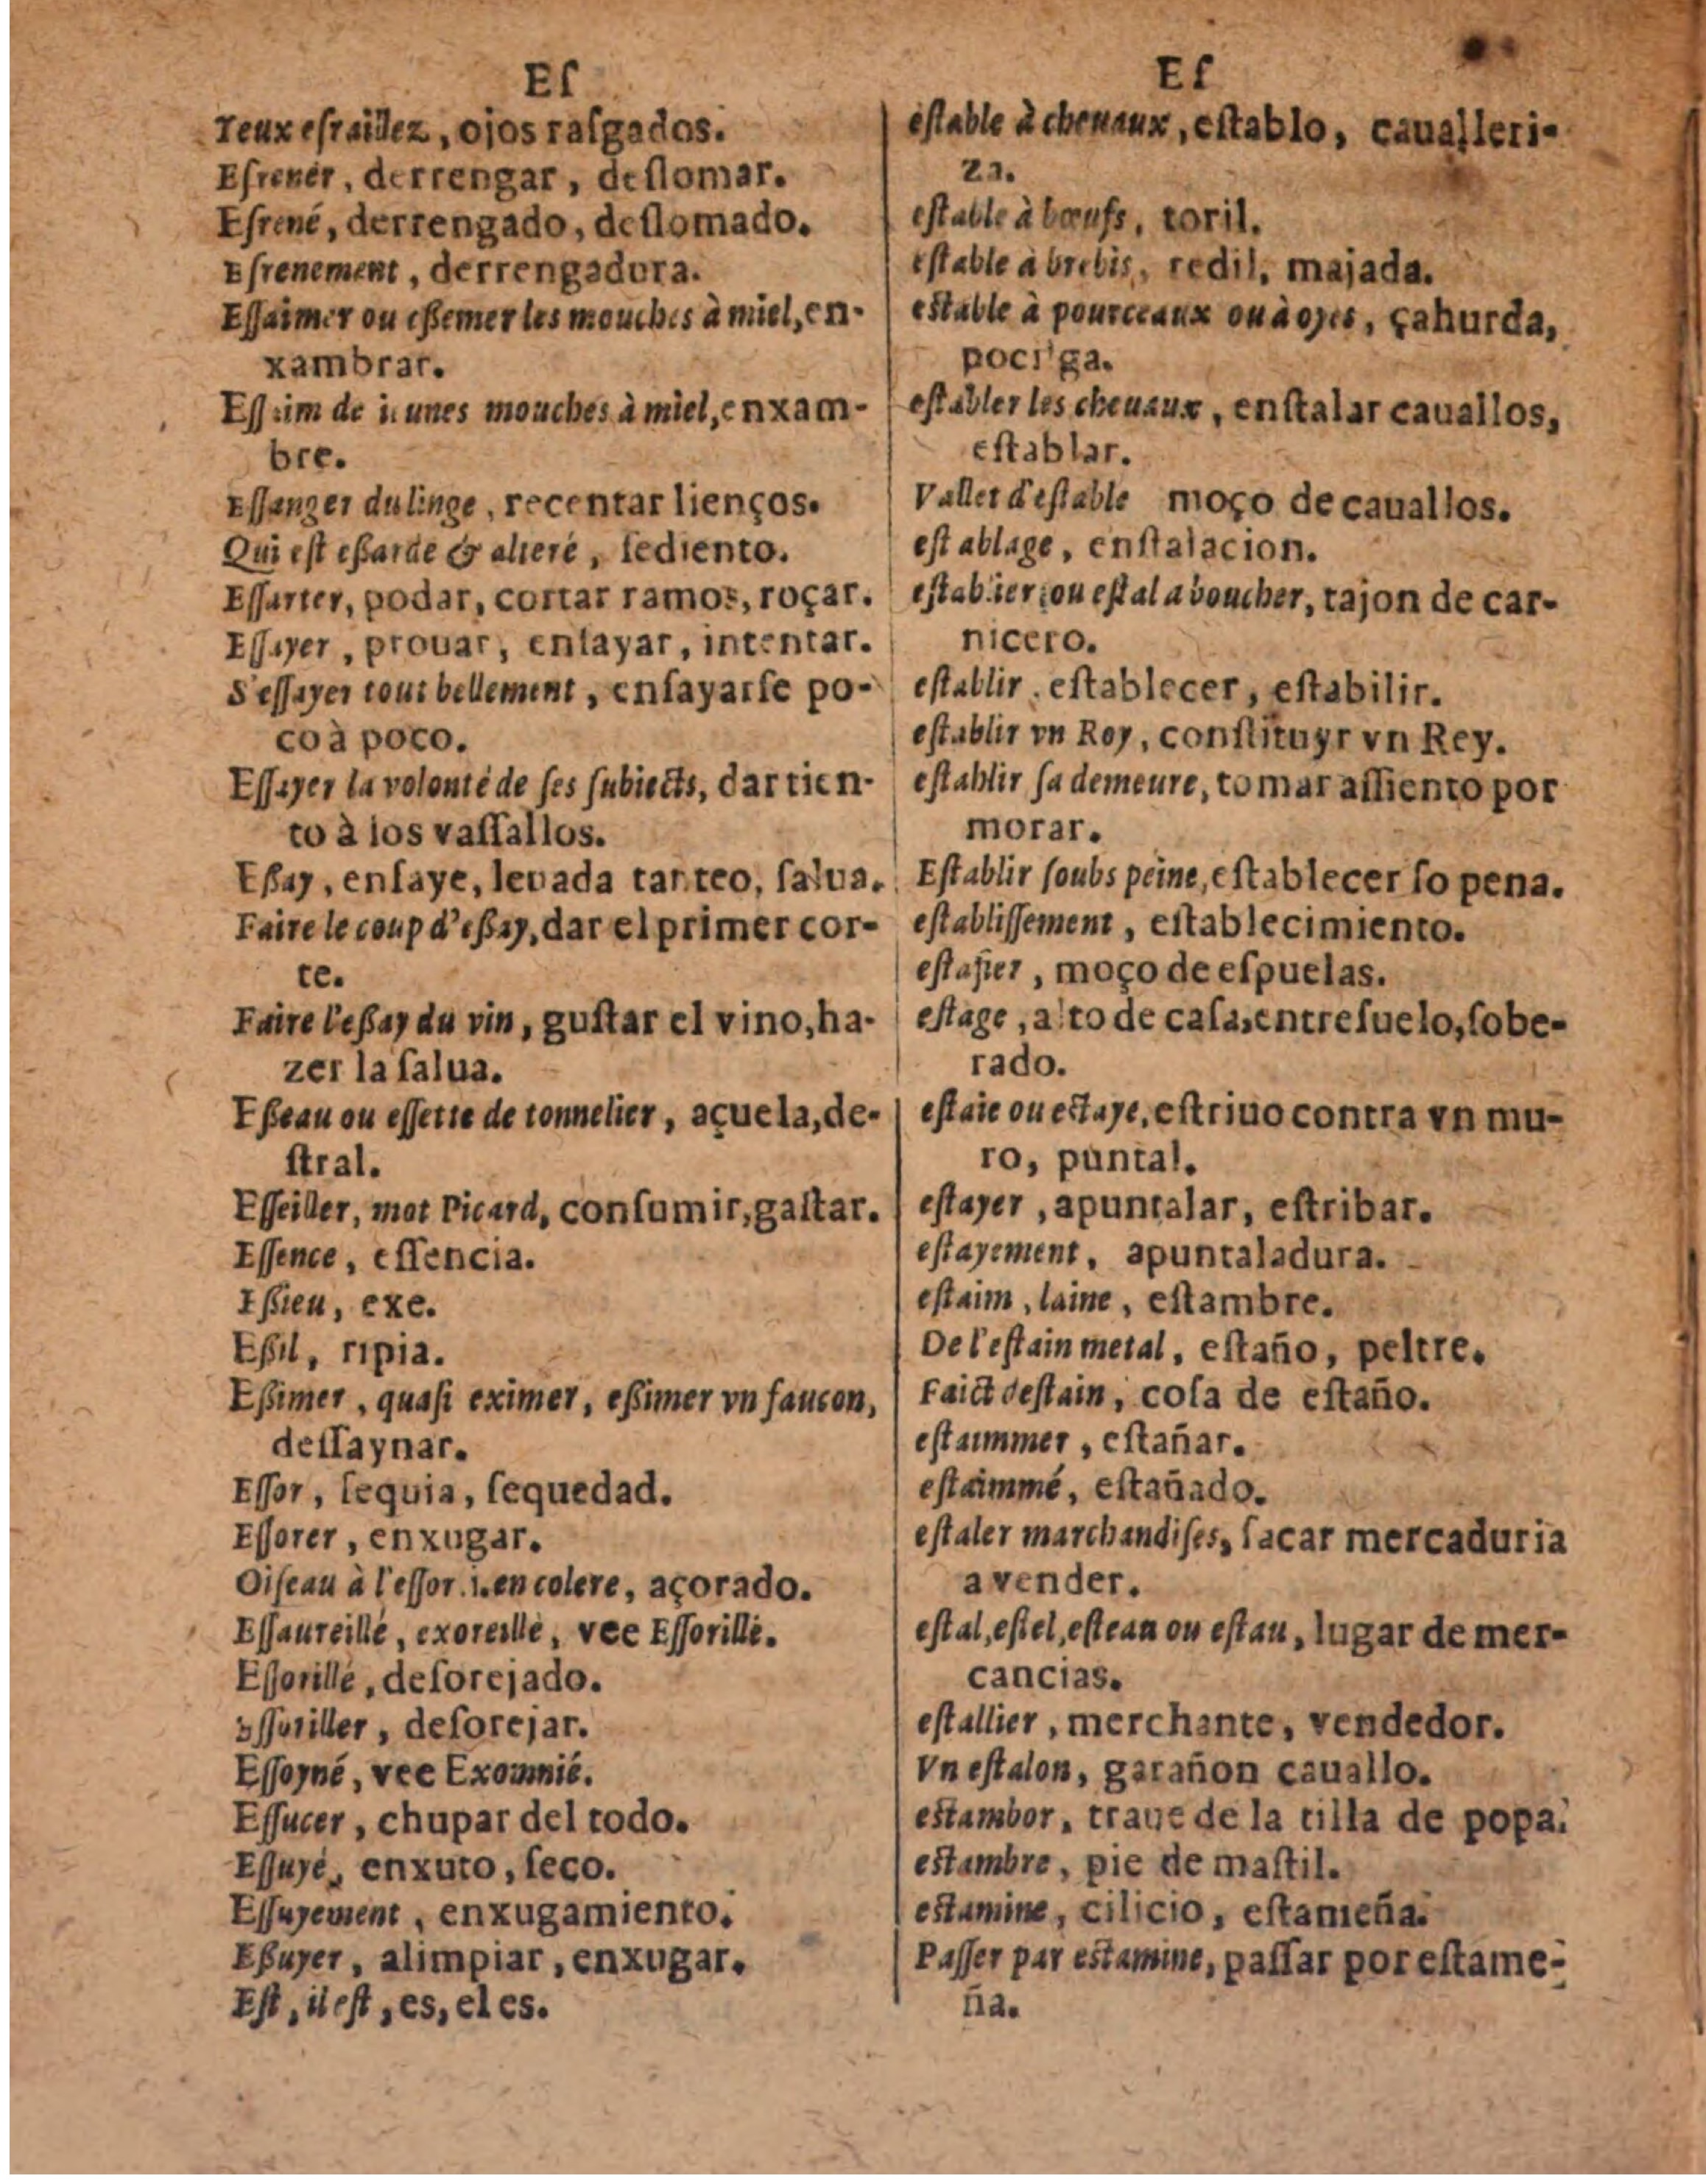 Eſ
Yeux eſraillez, ojos raſgados.
Eſrener, derrengar, deſlomar.
Eſrené, derrengado, deſlomado.
Eſrenement, derrengadura.
Eſſaimer ou eſſemer les mouches à miel, en-
xambrar.
Eſſaim de ieunes mouches à miel, enxam-
bre.
Eſſanger du linge, recentar lienços.
Qui eſt eßarde & alteré, ſediento.
Eſſarter, podar, cortar ramos, roçar.
Eſſayer, prouar, enſayar, intentar.
S'eſſayer tout bellement, enſayarſe po-
co à poco.
Eſſayer la volonté de ſes ſubiects, dar tien-
to à los vaſſallos.
Eßay, enſaye, leuada tanteo, ſalua.
Faire le coup d'eßay, dar el primer cor-
te.
Faire l'eßay du vin, guſtar el vino, ha-
zer la ſalua.
Eßeau ou eſſette de tonnelier, açuela, de-
ſtral.
Eſſeiller, mot Picard, conſumir, gaſtar.
Eſſence, eſſencia.
Eßieu, exe.
Eßil, ripia.
Eßimer, quaſi eximer, eßimer vn faucon,
deſſaynar.
Eſſor, ſequia, ſequedad.
Eſſorer, enxugar.
Oiſeau à l'eſſor .i. en colere, açorado.
Eſſaureillé, exoreillé, vee Eſſorillé.
Eſſorillé, deſorejado.
Eſſoriller, deſorejar.
Eſſoyné, vee Exomnié.
Eſſucer, chupar del todo.
Eſſuyé, enxuto, ſeco.
Eſſuyement, enxugamiento.
Eßuyer, alimpiar, enxugar.
Eſt, il eſt, es, el es.
Eſ
eſtable à cheuaux, eſtablo, cauallleri-
za.
eſtable à bœufs, toril.
eſtable à brebis, redil, majada.
eſtable à pourceaux ou à oyes, çahurda,
pocilga.
eſtabler les cheuaux, enſtalar cauallos,
eſtablar.
Vallet d'eſtable moço de cauallos.
eſtablage, enſtalacion.
eſtablier, ou eſtal a boucher, tajon de car-
nicero.
eſtablir, eſtablecer, eſtabilir.
eſtablir vn Roy, conſtituyr vn Rey.
eſtablir ſa demeure, tomar aſſiento por
morar.
Eſtablir ſoubs peine, eſtablecer ſo pena.
eſtabliſſement, eſtablecimiento.
eſtafier, moço de eſpuelas.
eſtage, alto de caſa, entreſuelo, ſobe-
rado.
eſtaie ou eſtaye, eſtriuo contra vn mu-
ro, puntal.
eſtayer, apuntalar, eſtribar.
eſtayement, apuntaladura.
eſtaim, laine, eſtambre.
De l'eſtain metal, eſtaño, peltre.
Faict deſtain, coſa de eſtaño.
eſtaimmer, eſtañar.
eſtaimmé, eſtañado.
eſtaler marchandiſes, ſacar mercaduria
a vender.
eſtal, eſtel, eſteau ou eſtau, lugar de mer-
cancias.
eſtallier, merchante, vendedor.
Vn eſtalon, garañon cauallo.
eſtambor, traue de la tilla de popa.
eſtambre, pie de maſtil.
eſtamine, cilicio, eſtameña.
Paſſer par eſtamine, paſſar por eſtame-
ña.